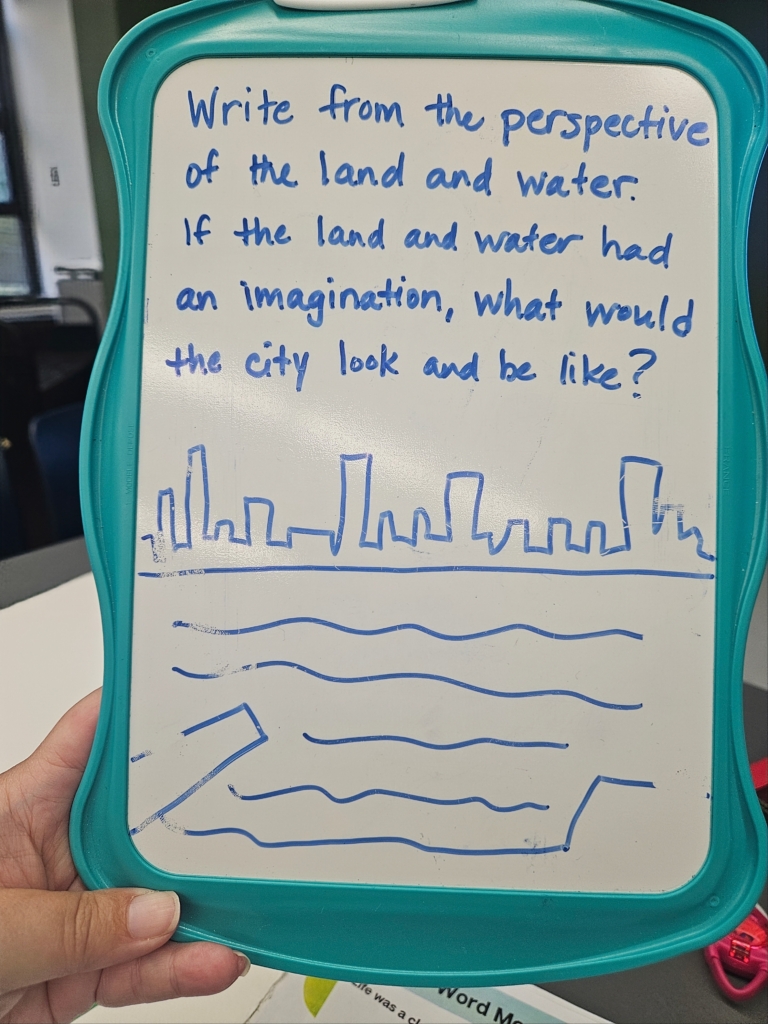 Write from the perspective
of the land and water.
If the land and water had
an imagination, what would
the city look and be like?
Life was a cl
Word Me